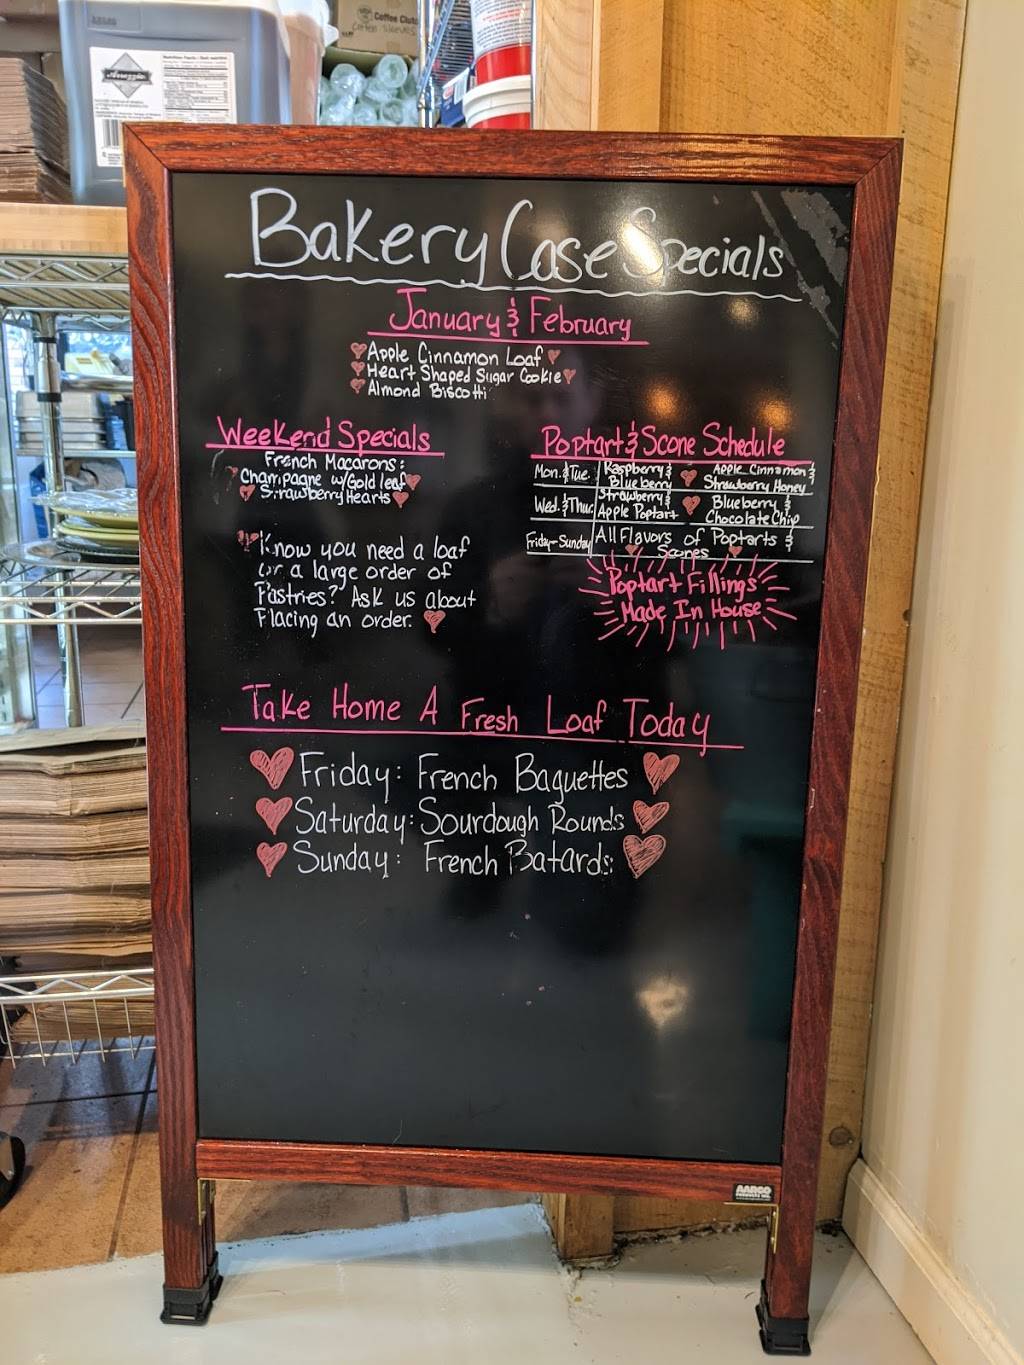 Coffee Clutch
Coffee Sleeves
Bakery Case Specials
January & February
Apple Cinnamon Loaf
Heart Shaped Sugar Cookie
Almond Biscotti
Weekend Specials
French Macarons:
Champagne w/Gold leaf
Strawberry Hearts
Know you need a loaf
or a large order of
Pastries? Ask us about
Placing an order.
Poptart & Scone Schedule
Mon. & Tue. Raspberry & Blueberry Apple Cinnamon & Strawberry Honey
Wed. & Thur. Strawberry & Apple Poptart Blueberry & Chocolate Chip
Friday-Sunday All Flavors of Poptarts & Scones
Poptart Fillings
Made In House
Take Home A Fresh Loaf Today
Friday: French Baguettes
Saturday: Sourdough Rounds
Sunday: French Batards:
AARCO
PRODUCTS INC.